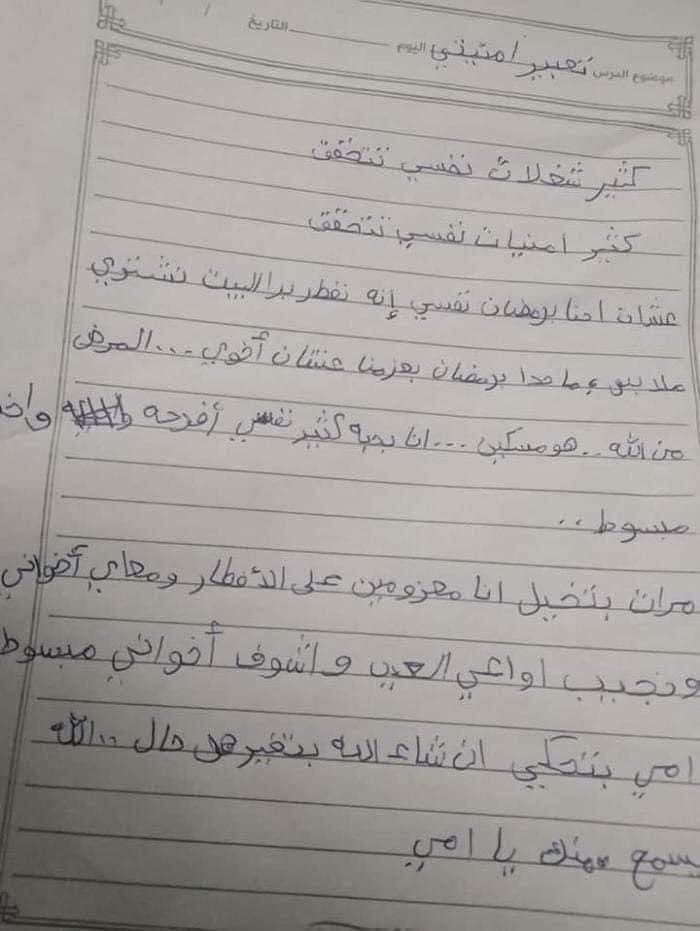 التاريخ
موضوع الدرس تعبير امتيني اليوم
كثير شغلات نفسي تتحقق
كثير امنيات نفسي تتحقق
عشان احنا برمضان نفسي إنه نفطر برا البيت نشتري
ملابس وما حدا برمضان بعزمنا عشان أخوي ... المرض
من الله .. هو مسكين ... انا بحبه كثير نفسي أفرحه واخ
مبسوط ..
مرات بتخيل انا معزومين على الأفطار ومعاي أخواني
ونجيب اواعي العيد واشوف أخواني مبسوط
امي بتحكي ان شاء الله بتغير هل حال .. الله
يسمع منك يا امي